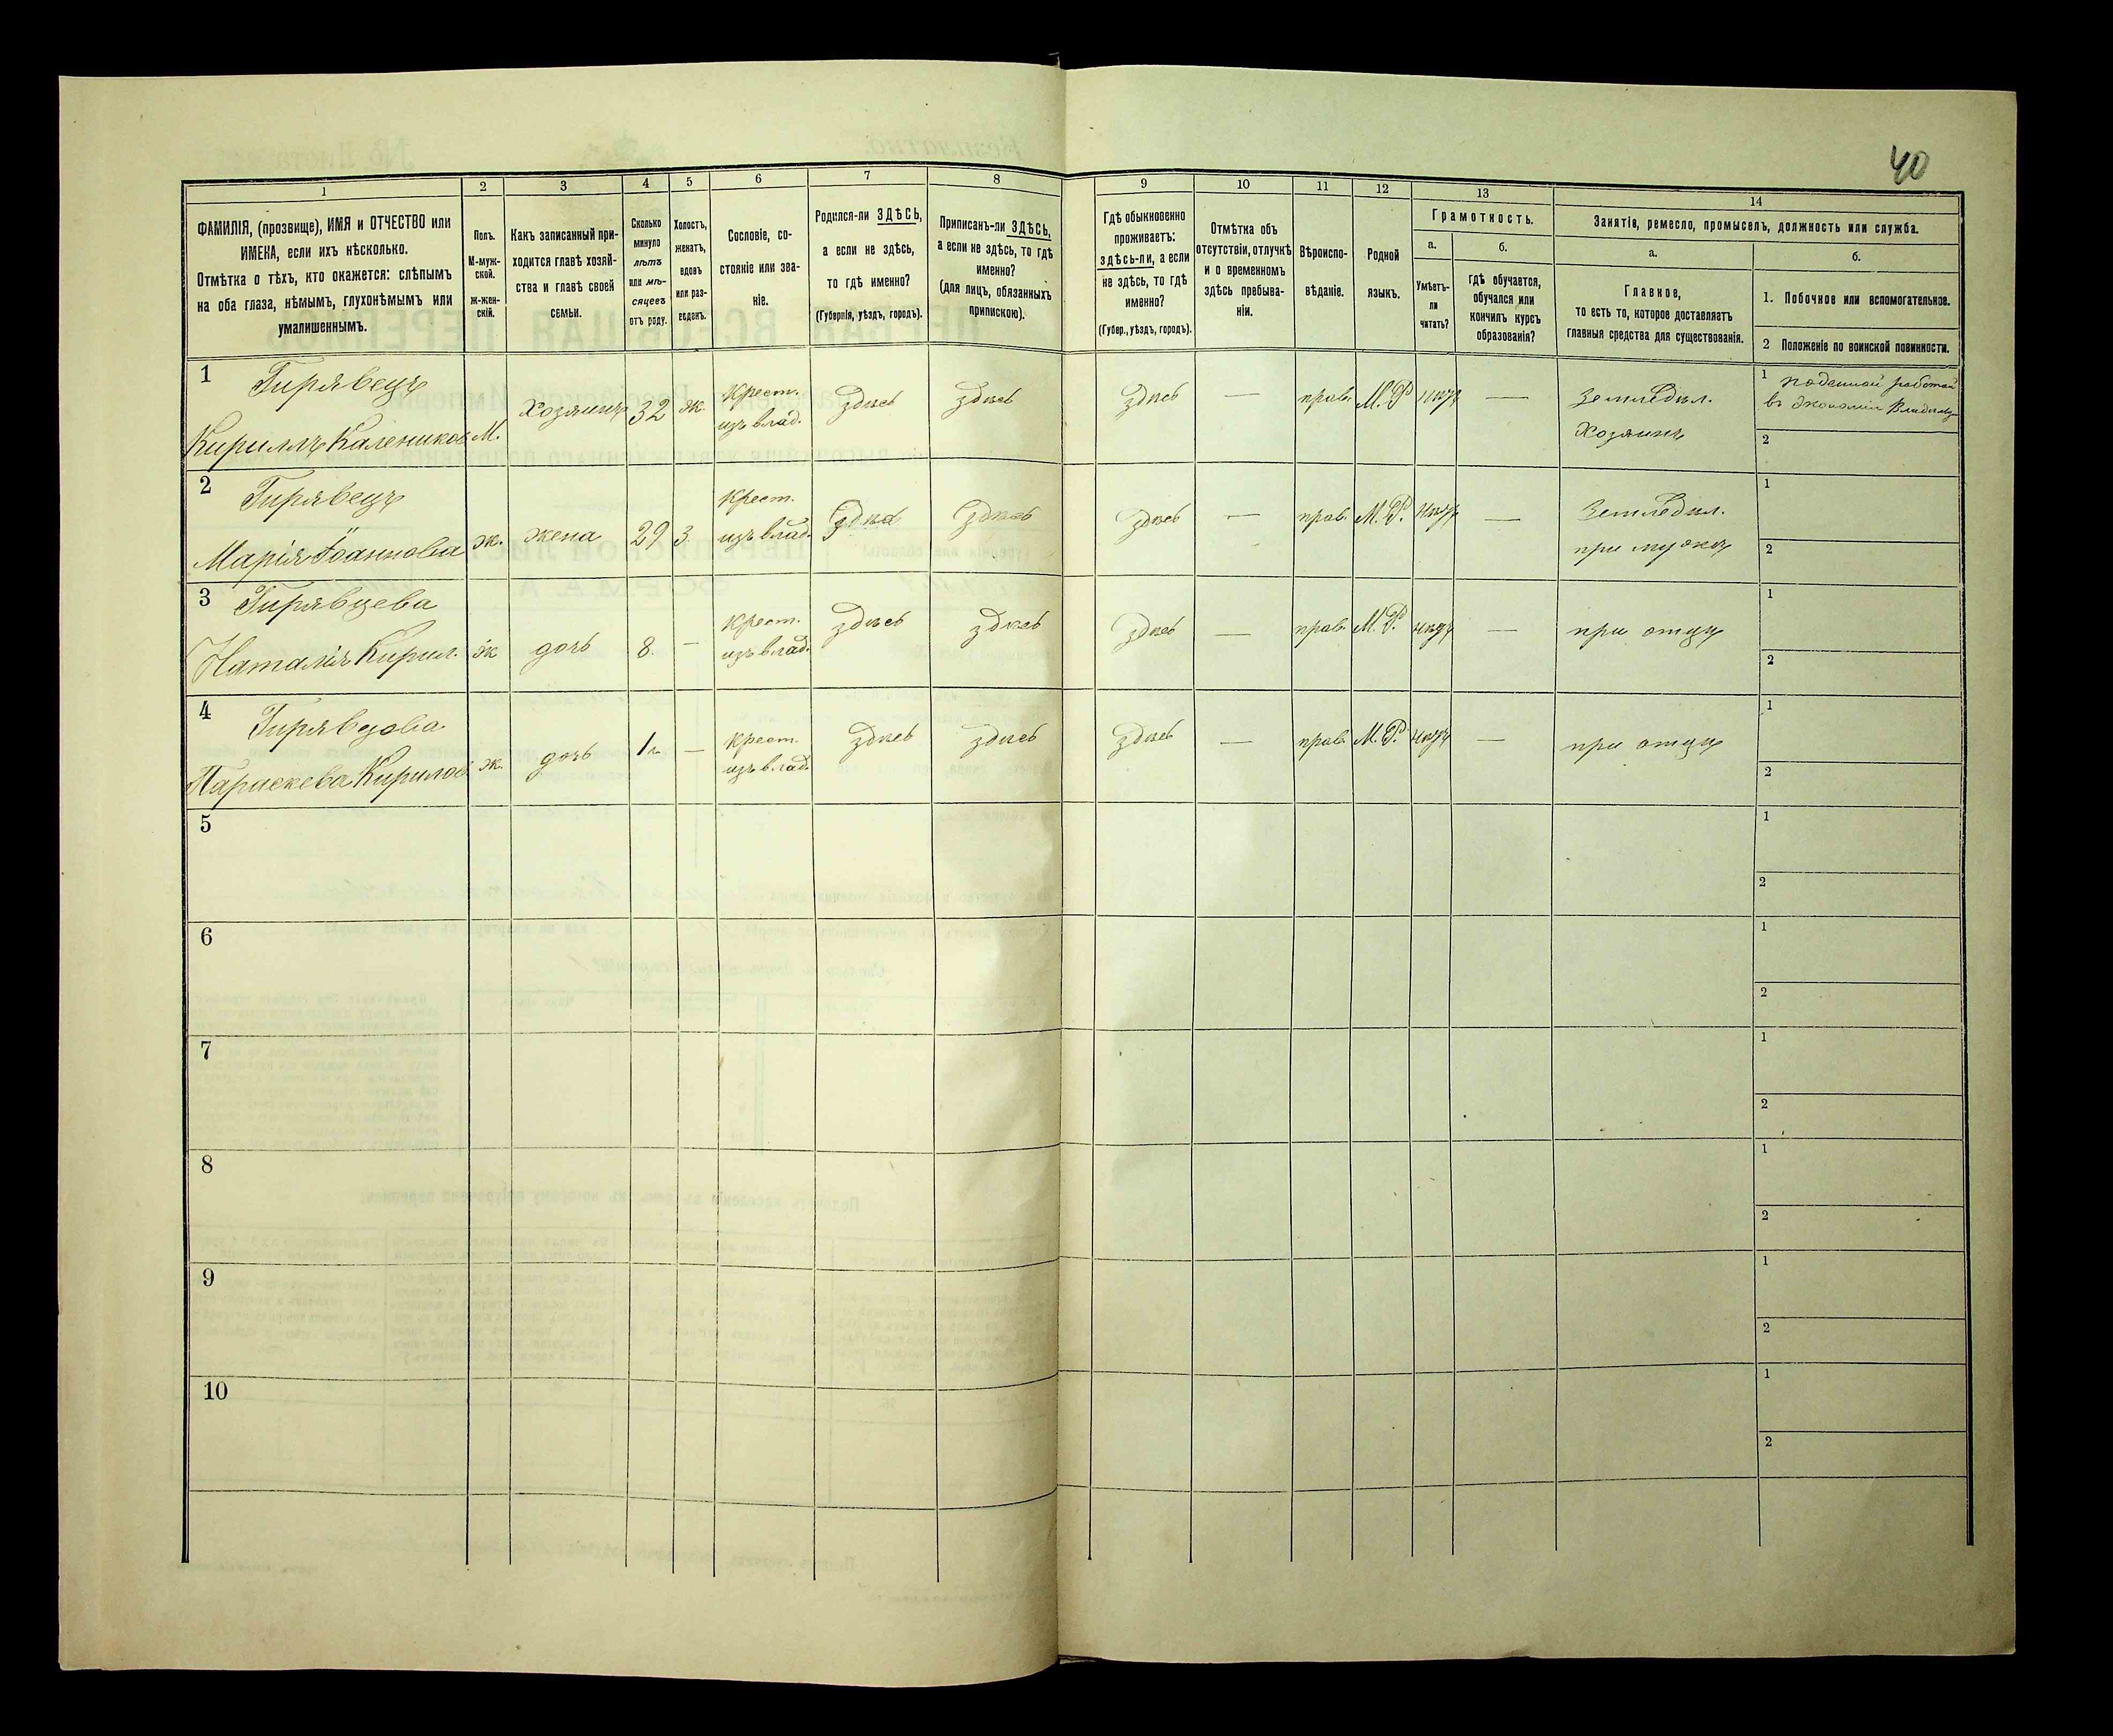 40
1
2
3
4
5
6
7
8
9
10
11
12
13
14
ФАМИЛІЯ, (прозвище), ИМЯ и ОТЧЕСТВО или
ИМЕНА, если ихъ нѣсколько.
Отмѣтка о тѣхъ, кто окажется: слѣпымъ
на оба глаза, нѣмымъ, глухонѣмымъ или
умалишеннымъ.
Полъ.
М-муж-
ской.
ж-жен-
скій.
Какъ записанный при-
ходится главѣ хозяй-
ства и главѣ своей
семьи.
Сколько
минуло
лѣтъ
или мѣ-
сяцевъ
отъ роду.
Холостъ,
женатъ,
вдовъ
или раз-
веденъ.
Сословіе, со-
стояніе или зва-
ніе.
Родился-ли ЗДѢСЬ,
а если не здѣсь,
то гдѣ именно?
(Губернія, уѣздъ, городъ).
Приписанъ-ли ЗДѢСЬ,
а если не здѣсь, то гдѣ
именно?
(для лицъ, обязанныхъ
припискою).
Гдѣ обыкновенно
проживаетъ:
здѣсь-ли, а если
не здѣсь, то гдѣ
именно?
(Губер., уѣздъ, городъ).
Отмѣтка объ
отсутствіи, отлучкѣ
и о временномъ
здѣсь пребыва-
ніи.
Вѣроиспо-
вѣданіе.
Родной
языкъ.
Грамотность.
а.
Умѣетъ-
ли
читать?
б.
гдѣ обучается,
обучался или
кончилъ курсъ
образованія?
Занятіе, ремесло, промыселъ, должность или служба.
а.
Главное,
то есть то, которое доставляетъ
главныя средства для существованія.
б.
1. Побочное или вспомогательное.
2 Положеніе по воинской повинности.
1 Гирявецъ
Кириллъ Калениковъ М. хозяинъ 32 ж. Крест. изъ влад. здѣсь здѣсь здѣсь — прав. М. Р. нѣтъ — Земледѣл. Хозяинъ
1 поденной работой
въ экономіи
2
2 Гирявецъ
Марія Іоаннова ж. жена 29 з. Крест. изъ влад. здѣсь здѣсь здѣсь — прав. М. Р. нѣтъ — Земледѣл. при мужѣ
1
2
3 Гирявцева
Наталія Кирил. ж дочь 8. — Крест. изъ влад. здѣсь здѣсь здѣсь — прав. М. Р. нѣтъ — при отцѣ
1
2
4 Гирявцова
Параскева Кирилов. ж. дочь 1 г. — крест. изъ влад. здѣсь здѣсь здѣсь — прав. М. Р. нѣтъ — при отцѣ
1
2
5
1
2
6
1
2
7
1
2
8
1
2
9
1
2
10
1
2